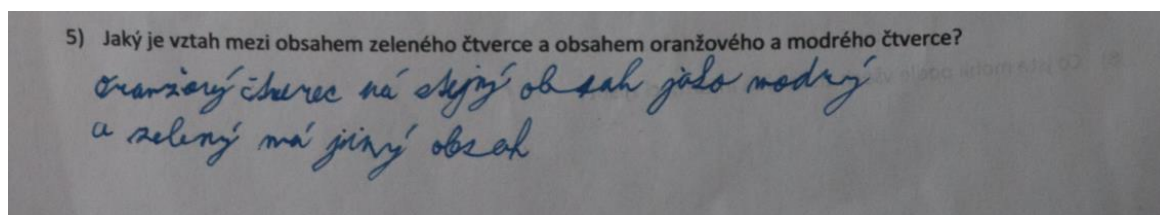 5) Jaký je vztah mezi obsahem zeleného čtverce a obsahem oranžového a modrého čtverce?
oranžový čtverec má stejný obsah jako modrý
a zelený má jiný obsah